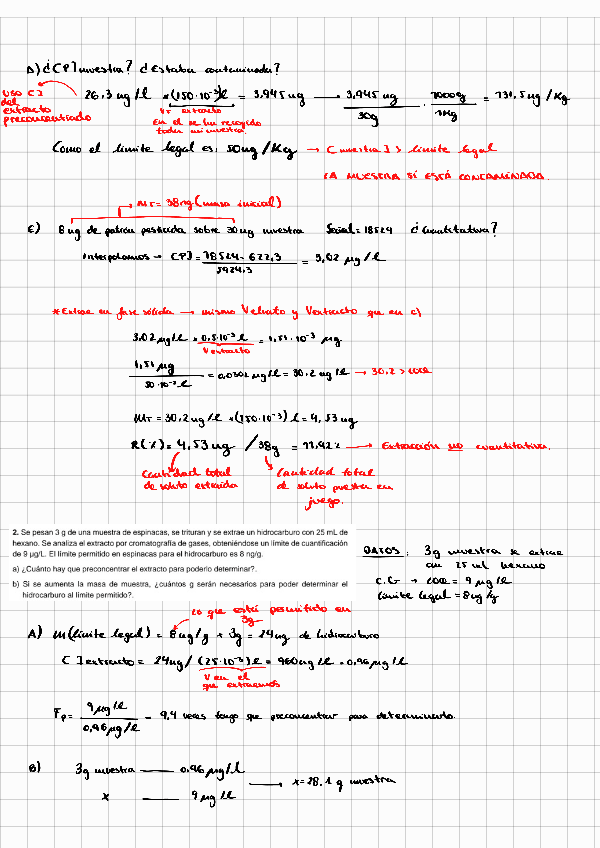 D) ¿[C] muestra? ¿Estaba contaminada?
USO [ ] del extracto preconcentrado
26.3 ng/l × (150·10⁻³)l = 3,945 ng → 3,945 ng / 30g · 1000g / 1Kg = 131,5 ng/Kg
V extracto
en el se ha recogido toda mi muestra
Como el límite legal es: 50ng/Kg → [muestra] > límite legal
LA MUESTRA SÍ ESTÁ CONTAMINADA.
→ MT = 38ng (masa inicial)
E) 8 ng de patrón pesticida sobre 30 ng muestra Señal = 18524 ¿Cuantitativa?
Interpolamos → [P] = 18524 - 622,3 / 5924,3 = 3,02 µg/l
*Extrae en fase sólida → mismo Veluato y Vextracto que en c)
3,02 µg/l × 0,5·10⁻³ l = 1,51·10⁻³ µg
V extracto
1,51 µg / 50·10⁻³ l = 0,0302 µg/l = 30,2 ng/l → 30.2 > LOQ
MT = 30,2 ng/l × (150·10⁻³) l = 4,53 ng
R(%) = 4,53 ng / 38g = 11,92% → Extracción no cuantitativa.
Cantidad total de soluto extraída
Cantidad total de soluto puesta en juego.
2. Se pesan 3 g de una muestra de espinacas, se trituran y se extrae un hidrocarburo con 25 mL de
hexano. Se analiza el extracto por cromatografía de gases, obteniéndose un límite de cuantificación
de 9 µg/L. El límite permitido en espinacas para el hidrocarburo es 8 ng/g.
a) ¿Cuánto hay que preconcentrar el extracto para poderlo determinar?.
b) Si se aumenta la masa de muestra, ¿cuántos g serán necesarios para poder determinar el
hidrocarburo al límite permitido?.
DATOS: 3g muestra se extrae
con 25 ml hexano
C.G → LOQ = 9 µg/l
límite legal = 8ng/g
lo que está permitido en 3g
A) m(límite legal) = 8 ng/g × 3g = 24ng de hidrocarburo
[ ] extracto = 24ng / (25·10⁻³)l = 960 ng/l = 0,96 µg/l
V en el que extraemos
Fp = 9 µg/l / 0,96 µg/l = 9,4 veces tengo que preconcentrar para determinarlo.
B) 3g muestra —— 0,96 µg/l
x —— 9 µg/l
→ x = 28.1 g muestra